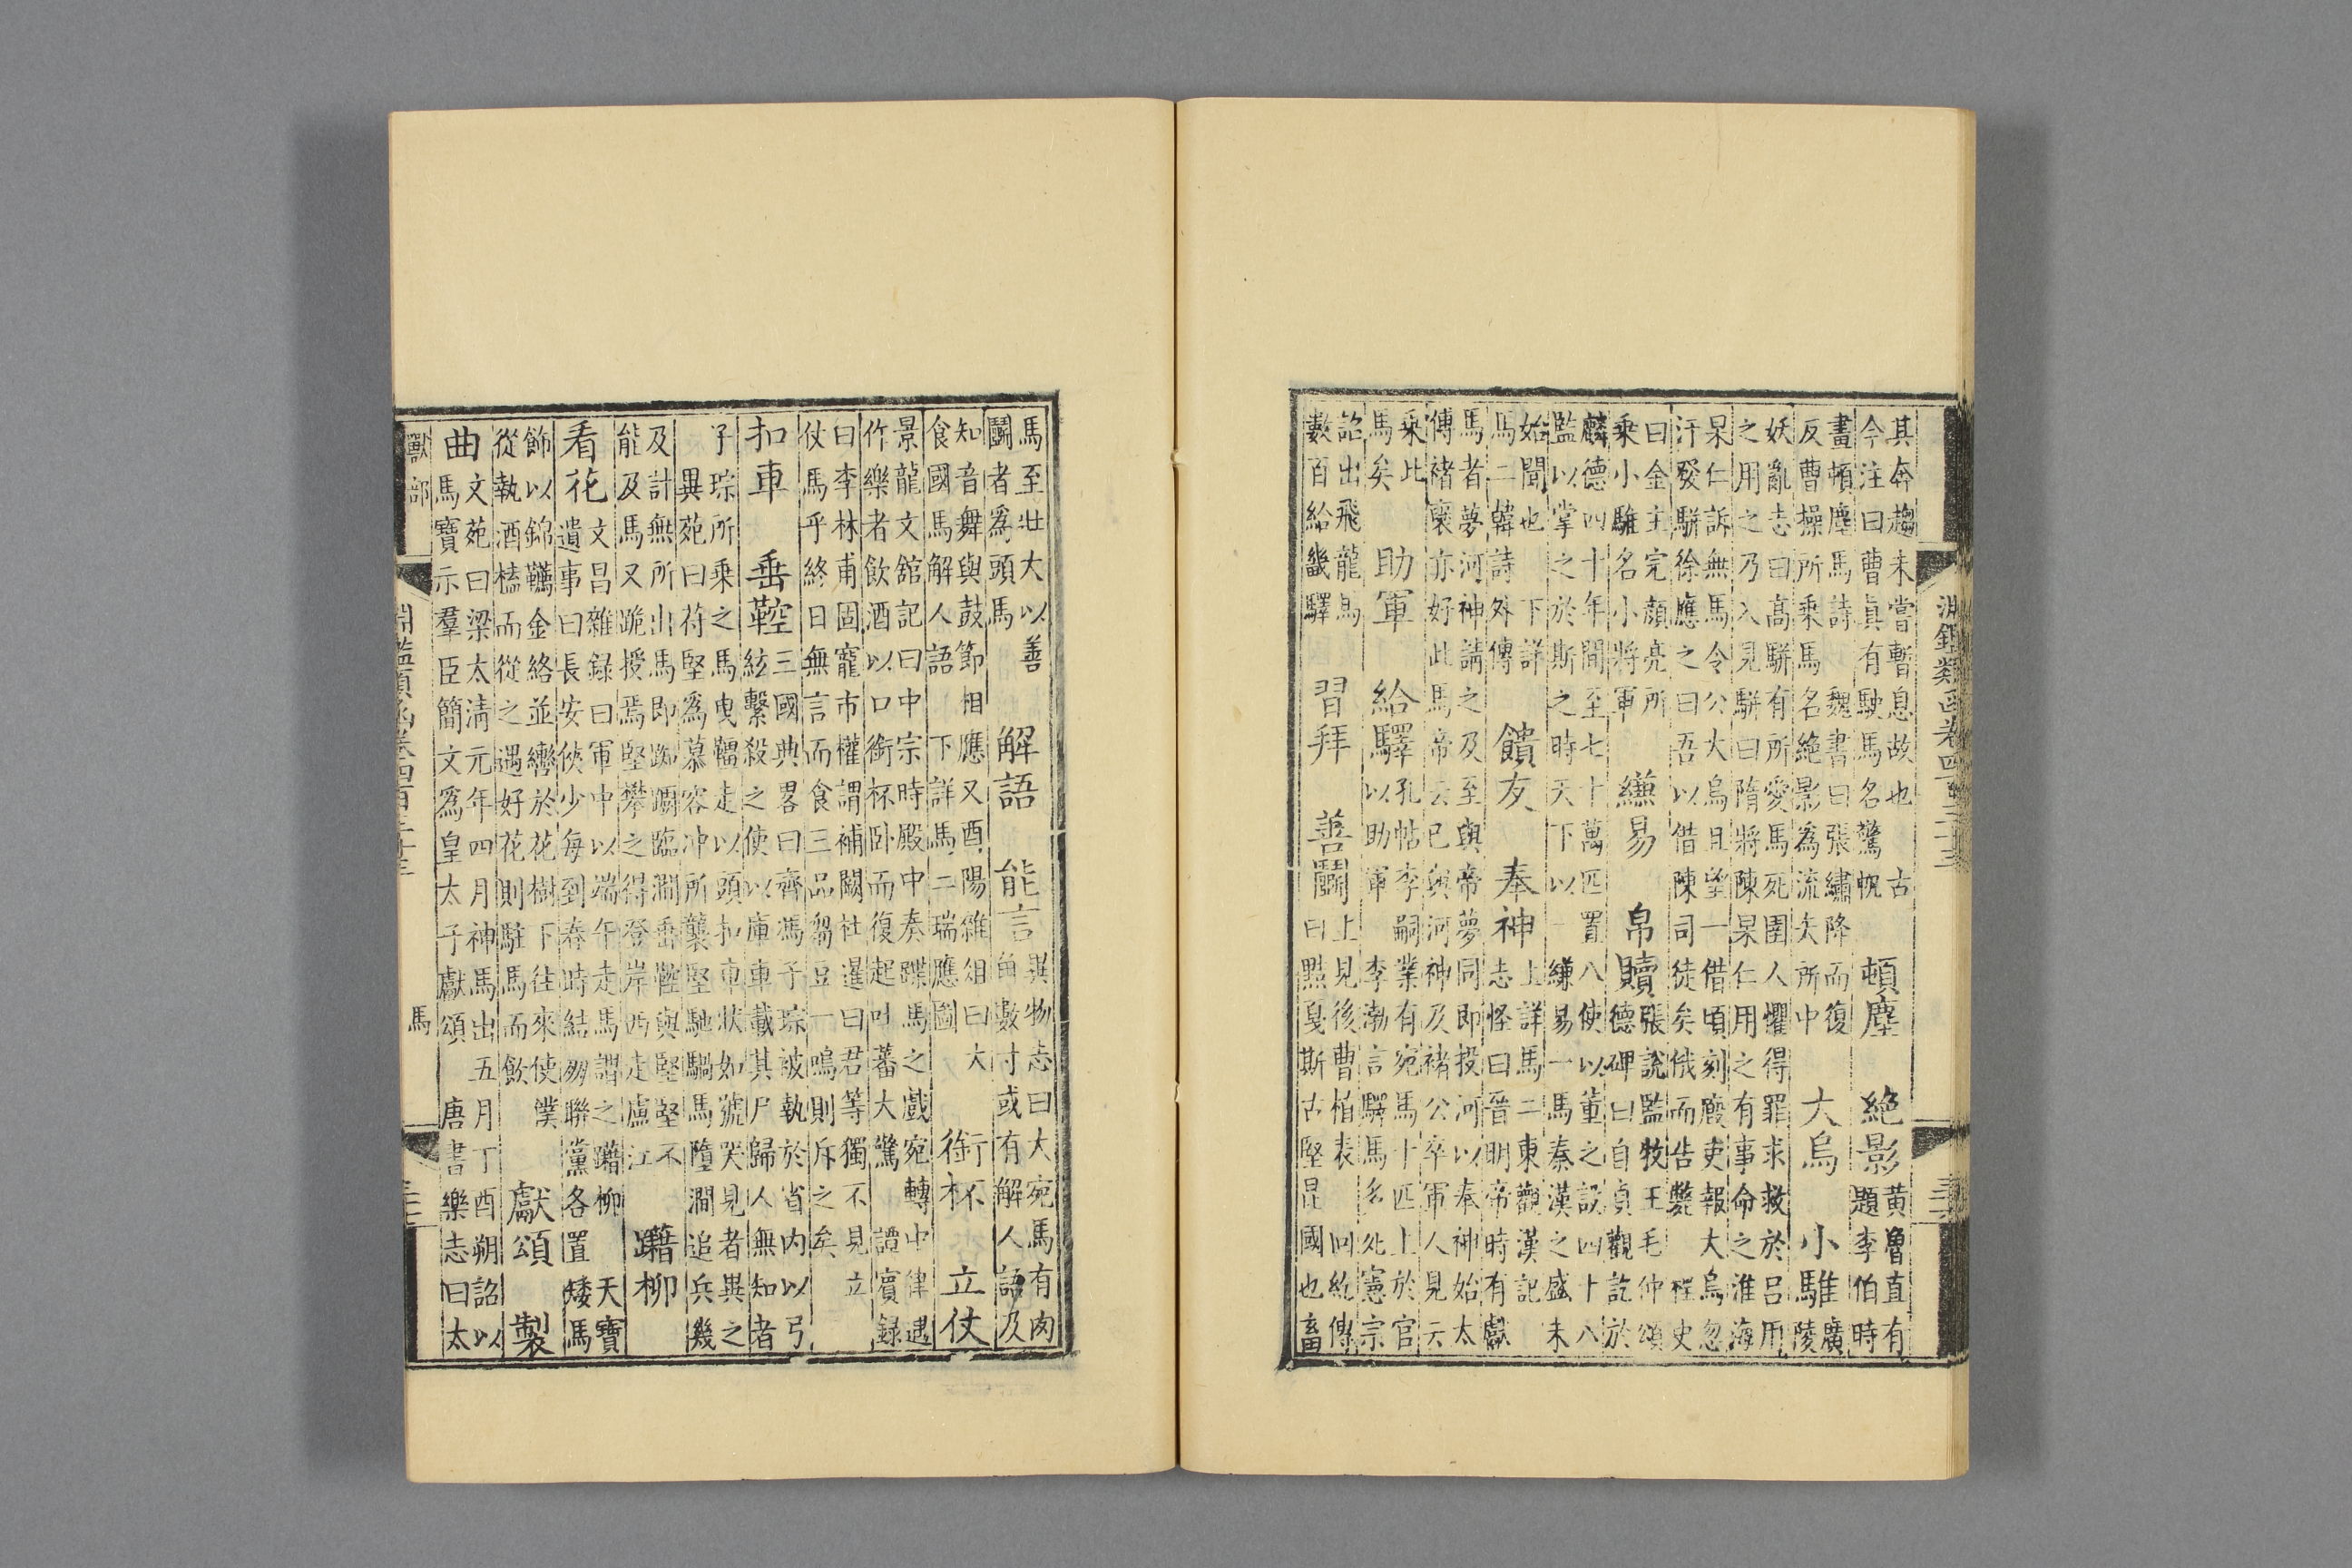 淵鑑類函卷四百三十三
其奔趨未嘗暫息故也 古
今注曰曹真有駛馬名驚帆
頓塵 絕影
黃魯直有
題李伯時
畫頓塵馬詩 魏書曰張繡降而復
反曹操所乘馬名絕影為流矢所中
大烏 小騅
廣
陵
妖亂志曰高駢有所愛馬死圉人懼得罪求救於呂用
之用之乃入見駢曰隋將陳杲仁用之有事命之淮海
杲仁訴無馬令公大烏且望一借頃刻廄吏報大烏忽
汗發駢徐應之曰吾以借陳司徒矣俄而告斃 桯史
曰金主完顏亮所
乘小騅名小將軍
縑易 帛贖
張說監牧王毛仲頌
德碑曰自貞觀訖於
麟德四十年間至七十萬匹置八使以董之設四十八
監以掌之於斯之時天下以一縑易一馬秦漢之盛未
始聞也 下詳
馬二韓詩外傳
饋友 奉神
上詳馬二東觀漢記
志怪曰晉明帝時有獻
馬者夢河神請之及至與帝夢同即投河以奉神始太
傅褚裒亦好此馬帝云已與河神及褚公卒軍人見云
乘此
馬矣
助軍 給驛
孔帖李嗣業有宛馬十匹上於官
以助軍 李渤言驛馬多死憲宗
詔出飛龍馬
數百給畿驛
習拜 善鬭
上見後曹植表 回紇傳
曰黠戛斯古堅昆國也畜
馬至壯大以善
鬭者爲頭馬
解語 能言
異物志曰大宛馬有肉
角數寸或有解人語及
知音舞與鼓節相應又酉陽雜俎曰大
食國馬解人語 下詳馬二瑞應圖
銜杯 立仗
景龍文館記曰中宗時殿中奏蹀馬之戲宛轉中律遇
作樂者飲酒以口銜杯卧而復起吐蕃大驚 譚賓錄
曰李林甫固寵市權謂補闕社暹曰君等獨不見立
仗馬乎終日無言而食三品芻豆一鳴則斥之矣
扣車 垂鞚
三國典畧曰齊馮子琮被執於省内以弓
絃繫殺之使以庫車載其尸歸人無知者
子琮所乘之馬曳韁走以頭扣車狀如號哭見者異之
異苑曰苻堅爲慕容冲所襲堅馳騧馬墮澗追兵幾
及計無所出馬即踟躕臨澗垂鞚與堅堅不
能及馬又跪授焉堅攀之得登岸西走廬江
躤柳
看花
文昌雜錄曰軍中以端午走馬謂之躤柳 天寶
遺事曰長安俠少每到春時結朋聯黨各置矮馬
飾以錦韉金絡並轡於花樹下往來使僕
從執酒榼而從之遇好花則駐馬而飲
獻頌 製
曲
文苑曰梁太清元年四月神馬出五月丁酉朔詔以
馬寶示羣臣簡文爲皇太子獻頌 唐書樂志曰太
獸部
馬